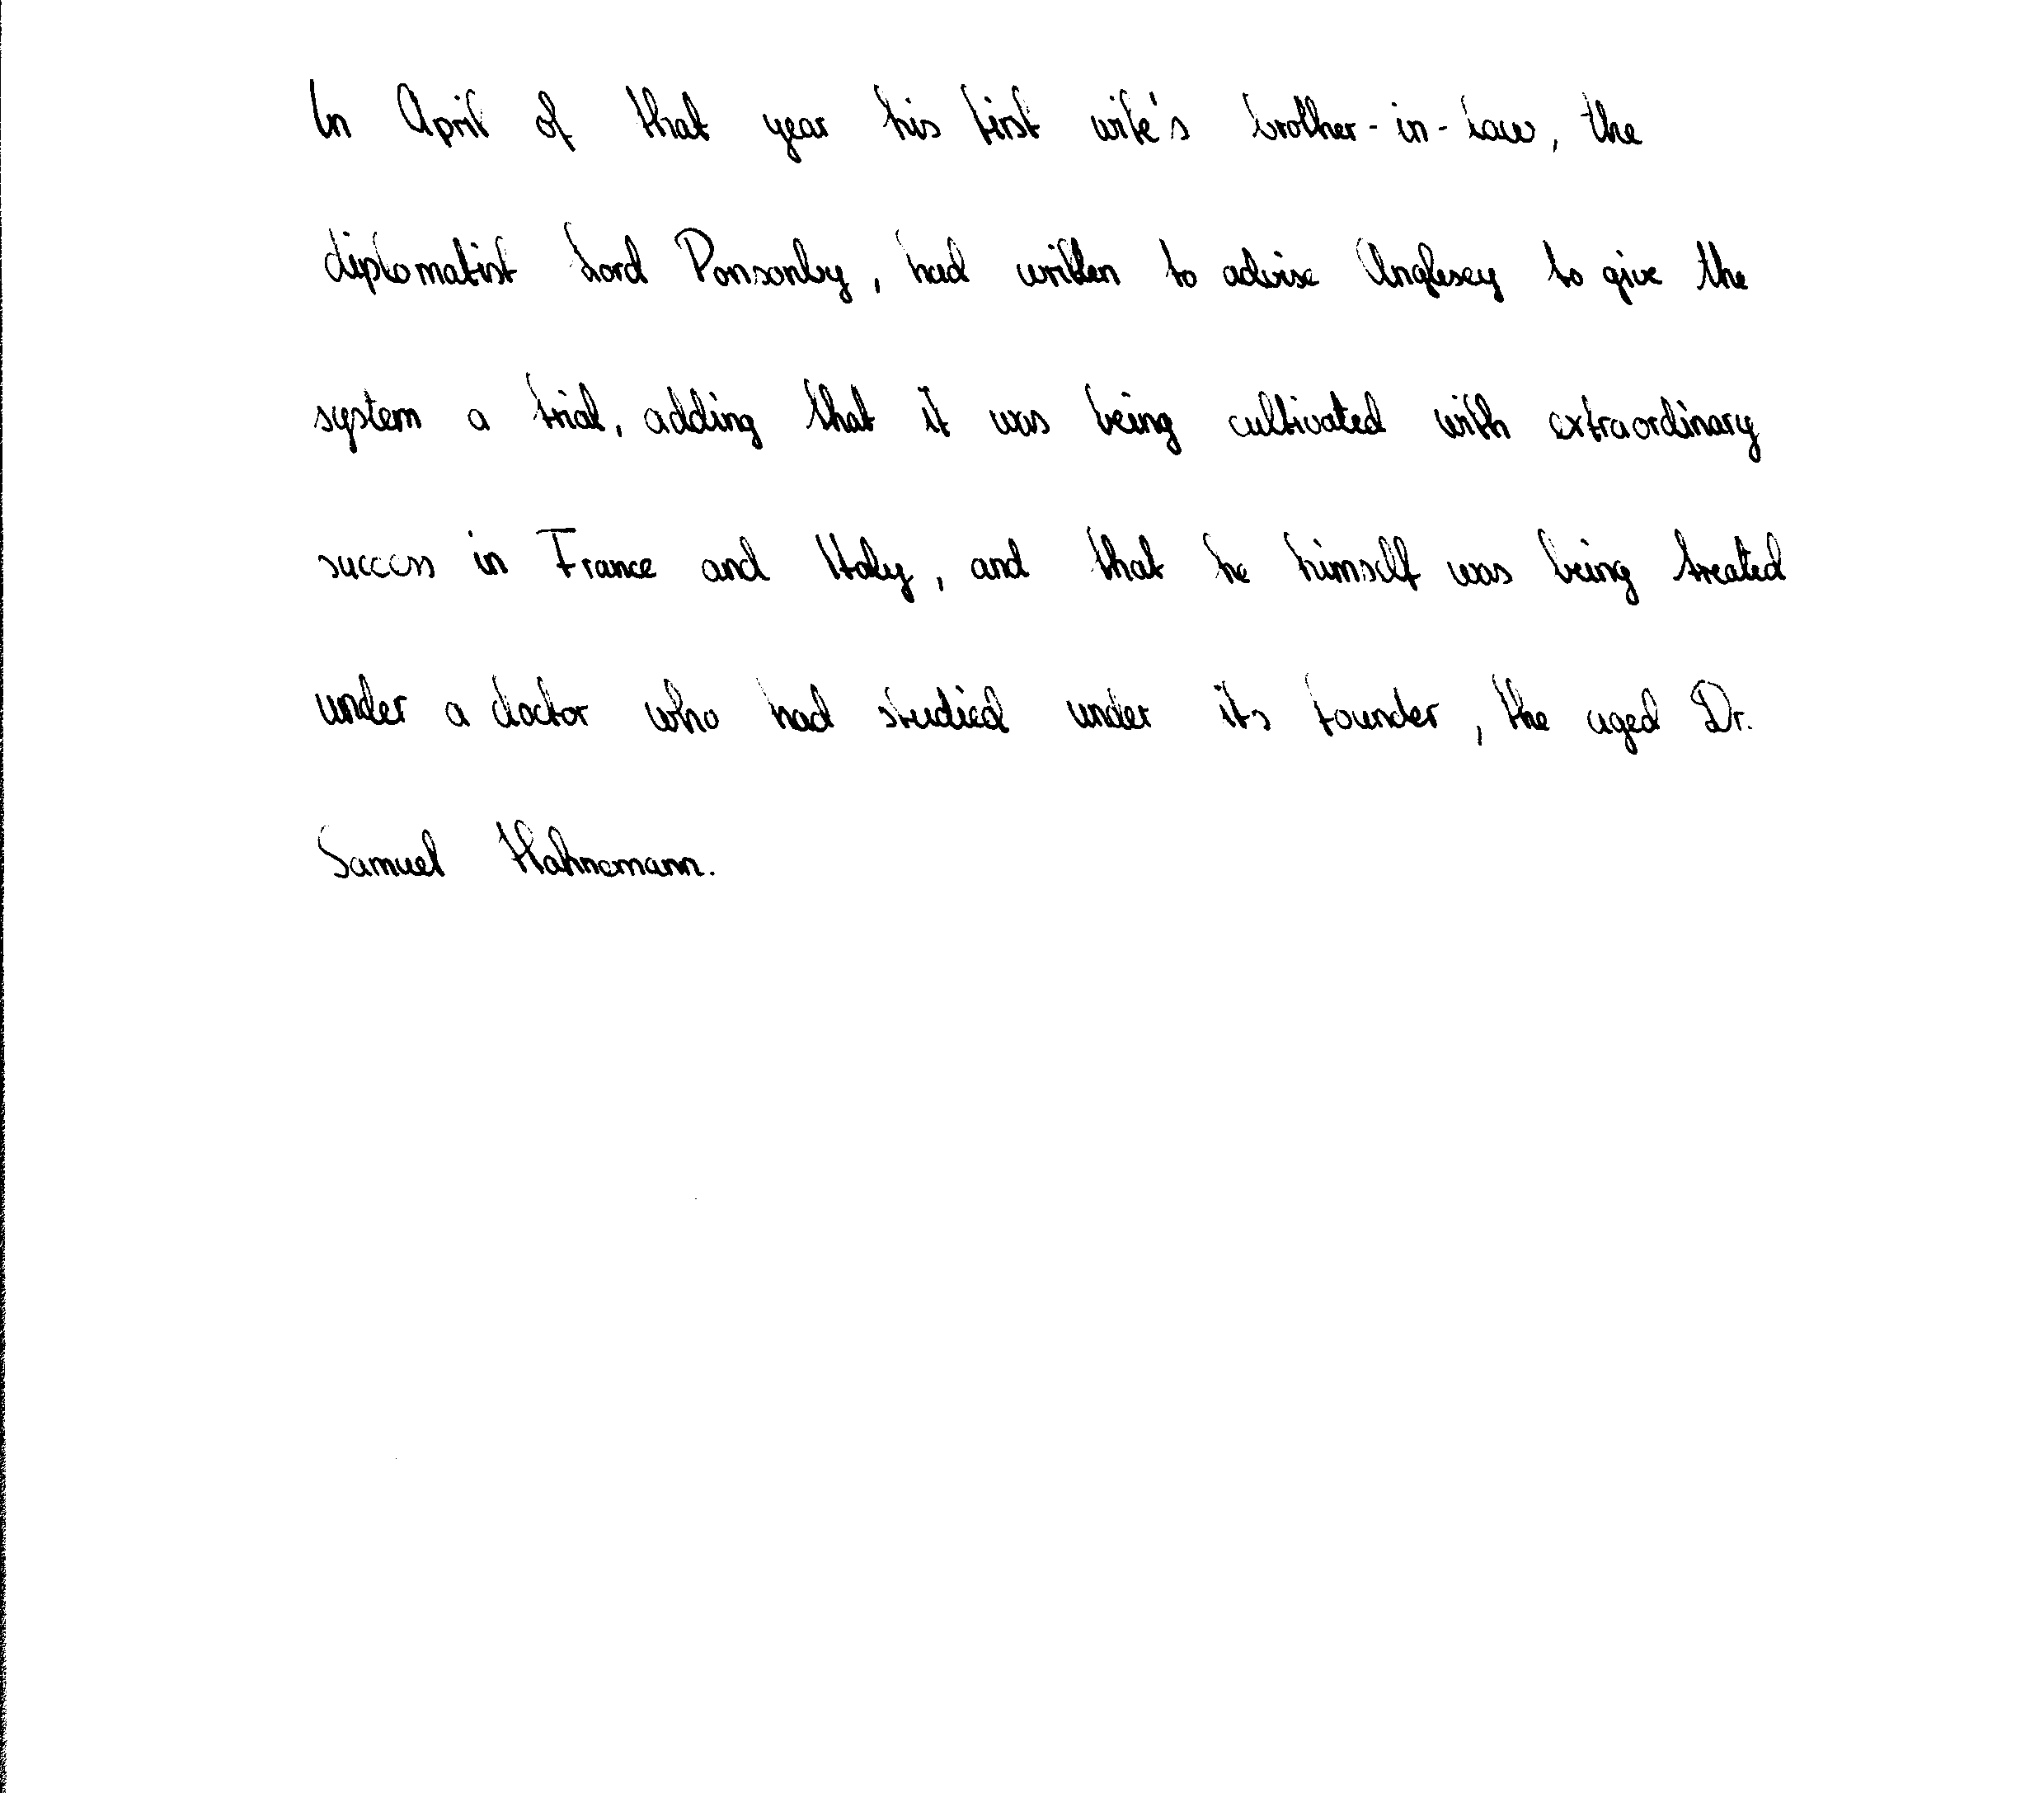 In April of that year his first wife's brother-in-law, the
diplomatist Lord Ponsonby, had written to advise Anglesey to give the
system a trial, adding that it was being cultivated with extraordinary
success in France and Italy, and that he himself was being treated
under a doctor who had studied under its founder, the aged Dr.
Samuel Hahnemann.